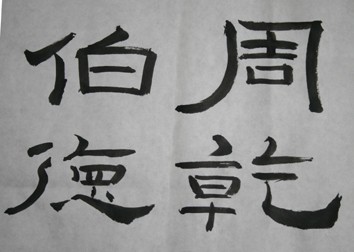 周乾
伯德